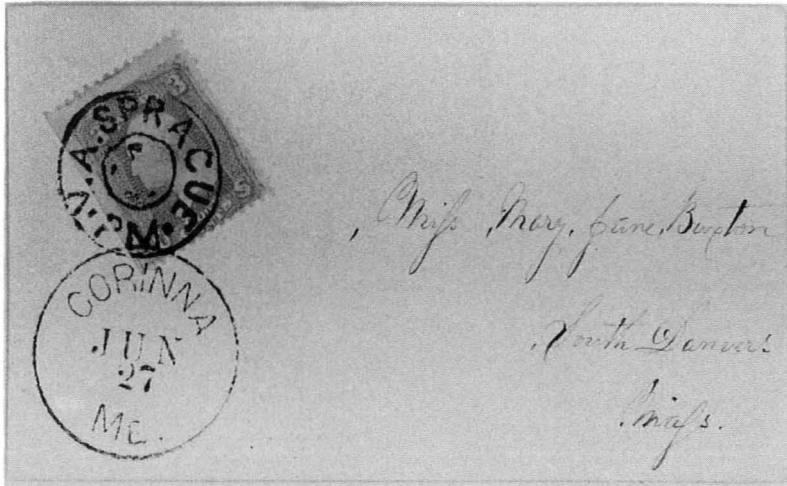 A. SPRAGUE
P.M.
CORINNA
JUN
27
ME.
Miss Mary Jane Buxton
South Danvers
Mass.